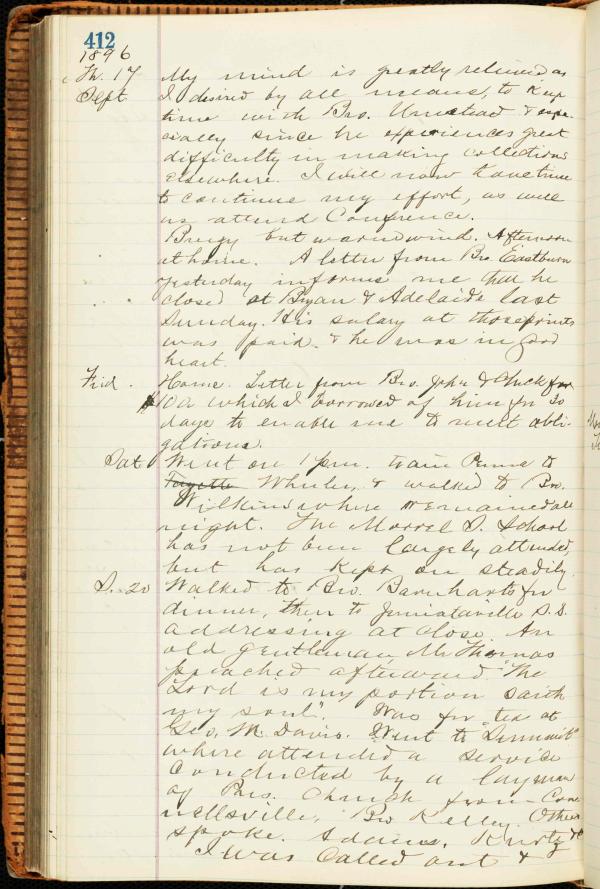 412
1896
Th. 17 My mind is greatly relieved as
Sept I desired by all means, to keep
time with Bro. Umstead & espe-
cially since he experiences great
difficulty in making collections
elsewhere. I will now have time
to continue my effort, as well
as attend Conference.
Breezy but warm wind. Afternoon
at home. A letter from Bro Eastburn
yesterday informs me that he
closed at Bryan & Adelaide last
Sunday. His salary at those points
was paid. & he was in good
heart.
Frid. Home. Letter from Bro. John & check for
which I borrowed of him for 30
days to enable me to meet obli-
gations.
Sat Went on 1 pm. train Penna to
Fayette Wheeler, & walked to Bro.
Wilkins where remained all
night. The Morrel S. School
has not been largely attended,
but has kept on steadily.
S. 20 Walked to Bro. Barnharts for
dinner, then to Juniataville S.S.
addressing at close. An
old gentleman, Mr Thomas
preached afterward. "The
Lord is my portion saith
my soul". Was for tea at
Geo. M. Davis. Went to "Summit"
where attended a service
conducted by a layman
of Pres. Church from Con-
nellsville, Bro Kelley. Others
spoke. Adams, Kurtz &c
I was called out &